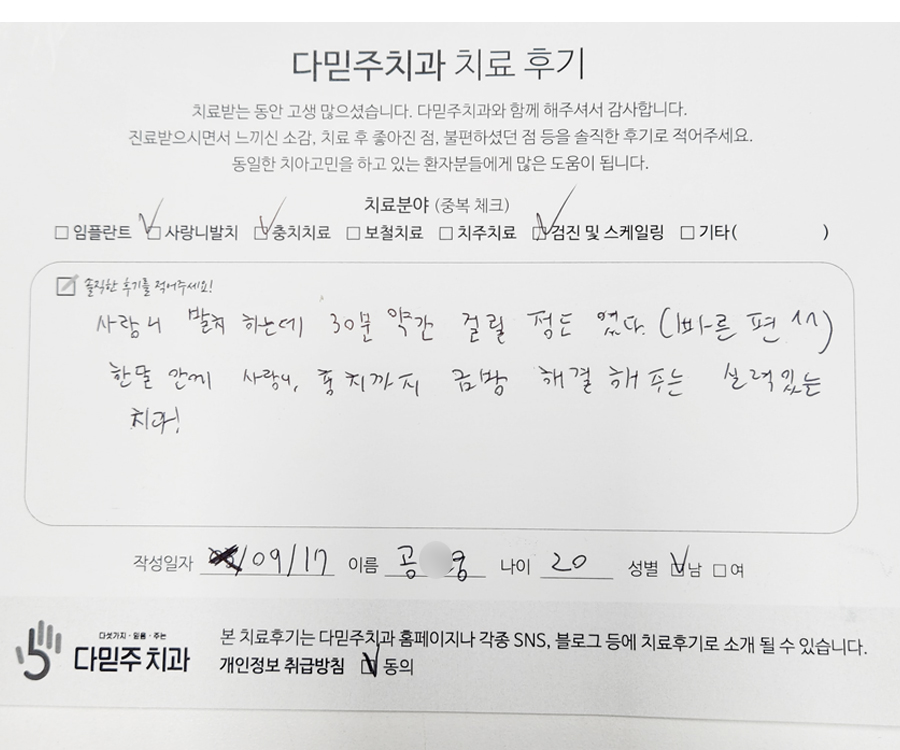 다믿주치과 치료 후기
치료받는 동안 고생 많으셨습니다. 다믿주치과와 함께 해주셔서 감사합니다.
진료받으시면서 느끼신 소감, 치료 후 좋아진 점, 불편하셨던 점 등을 솔직한 후기로 적어주세요.
동일한 치아고민을 하고 있는 환자분들에게 많은 도움이 됩니다.
치료분야 (중복 체크)
□ 임플란트 ☑ 사랑니발치 ☑ 충치치료 □ 보철치료 □ 치주치료 ☑ 검진 및 스케일링 □ 기타( )
솔직한 후기를 적어주세요!
사랑니 발치 하는데 30분 약간 걸릴 정도 였다. (빠른 편 ^^)
한달 안에 사랑니, 충치까지 금방 해결해 주는 실력있는
치과!
작성일자 /09/17 이름 공 나이 20 성별 ☑남 □여
다섯가지·믿음·주는
다믿주치과
본 치료후기는 다믿주치과 홈페이지나 각종 SNS, 블로그 등에 치료후기로 소개 될 수 있습니다.
개인정보 취급방침 ☑ 동의